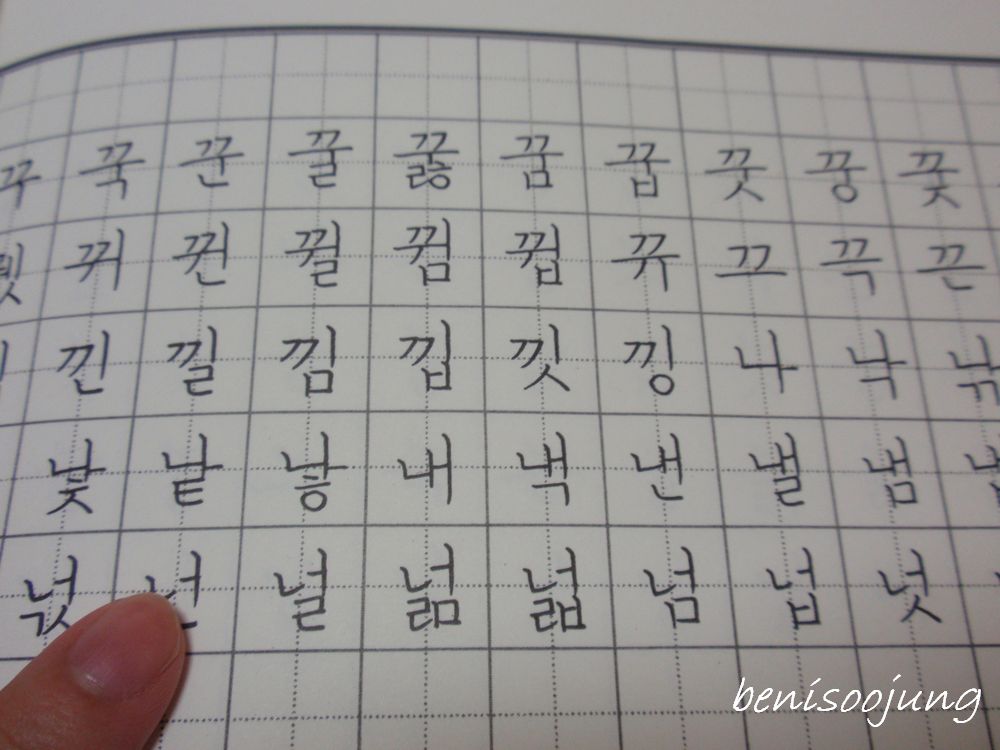 꾸 꾹 꾼 꿀 꿇 꿈 꿉 꿋 꿍 꿎
꿔 꿘 꿜 꿤 꿥 뀌 끄 끅 끈
낀 낄 낌 낍 낏 낑 나 낙 낚
낮 낱 낳 내 낵 낸 낼 냄
넋 넌 널 넒 넓 넘 넙 넛
benisoojung